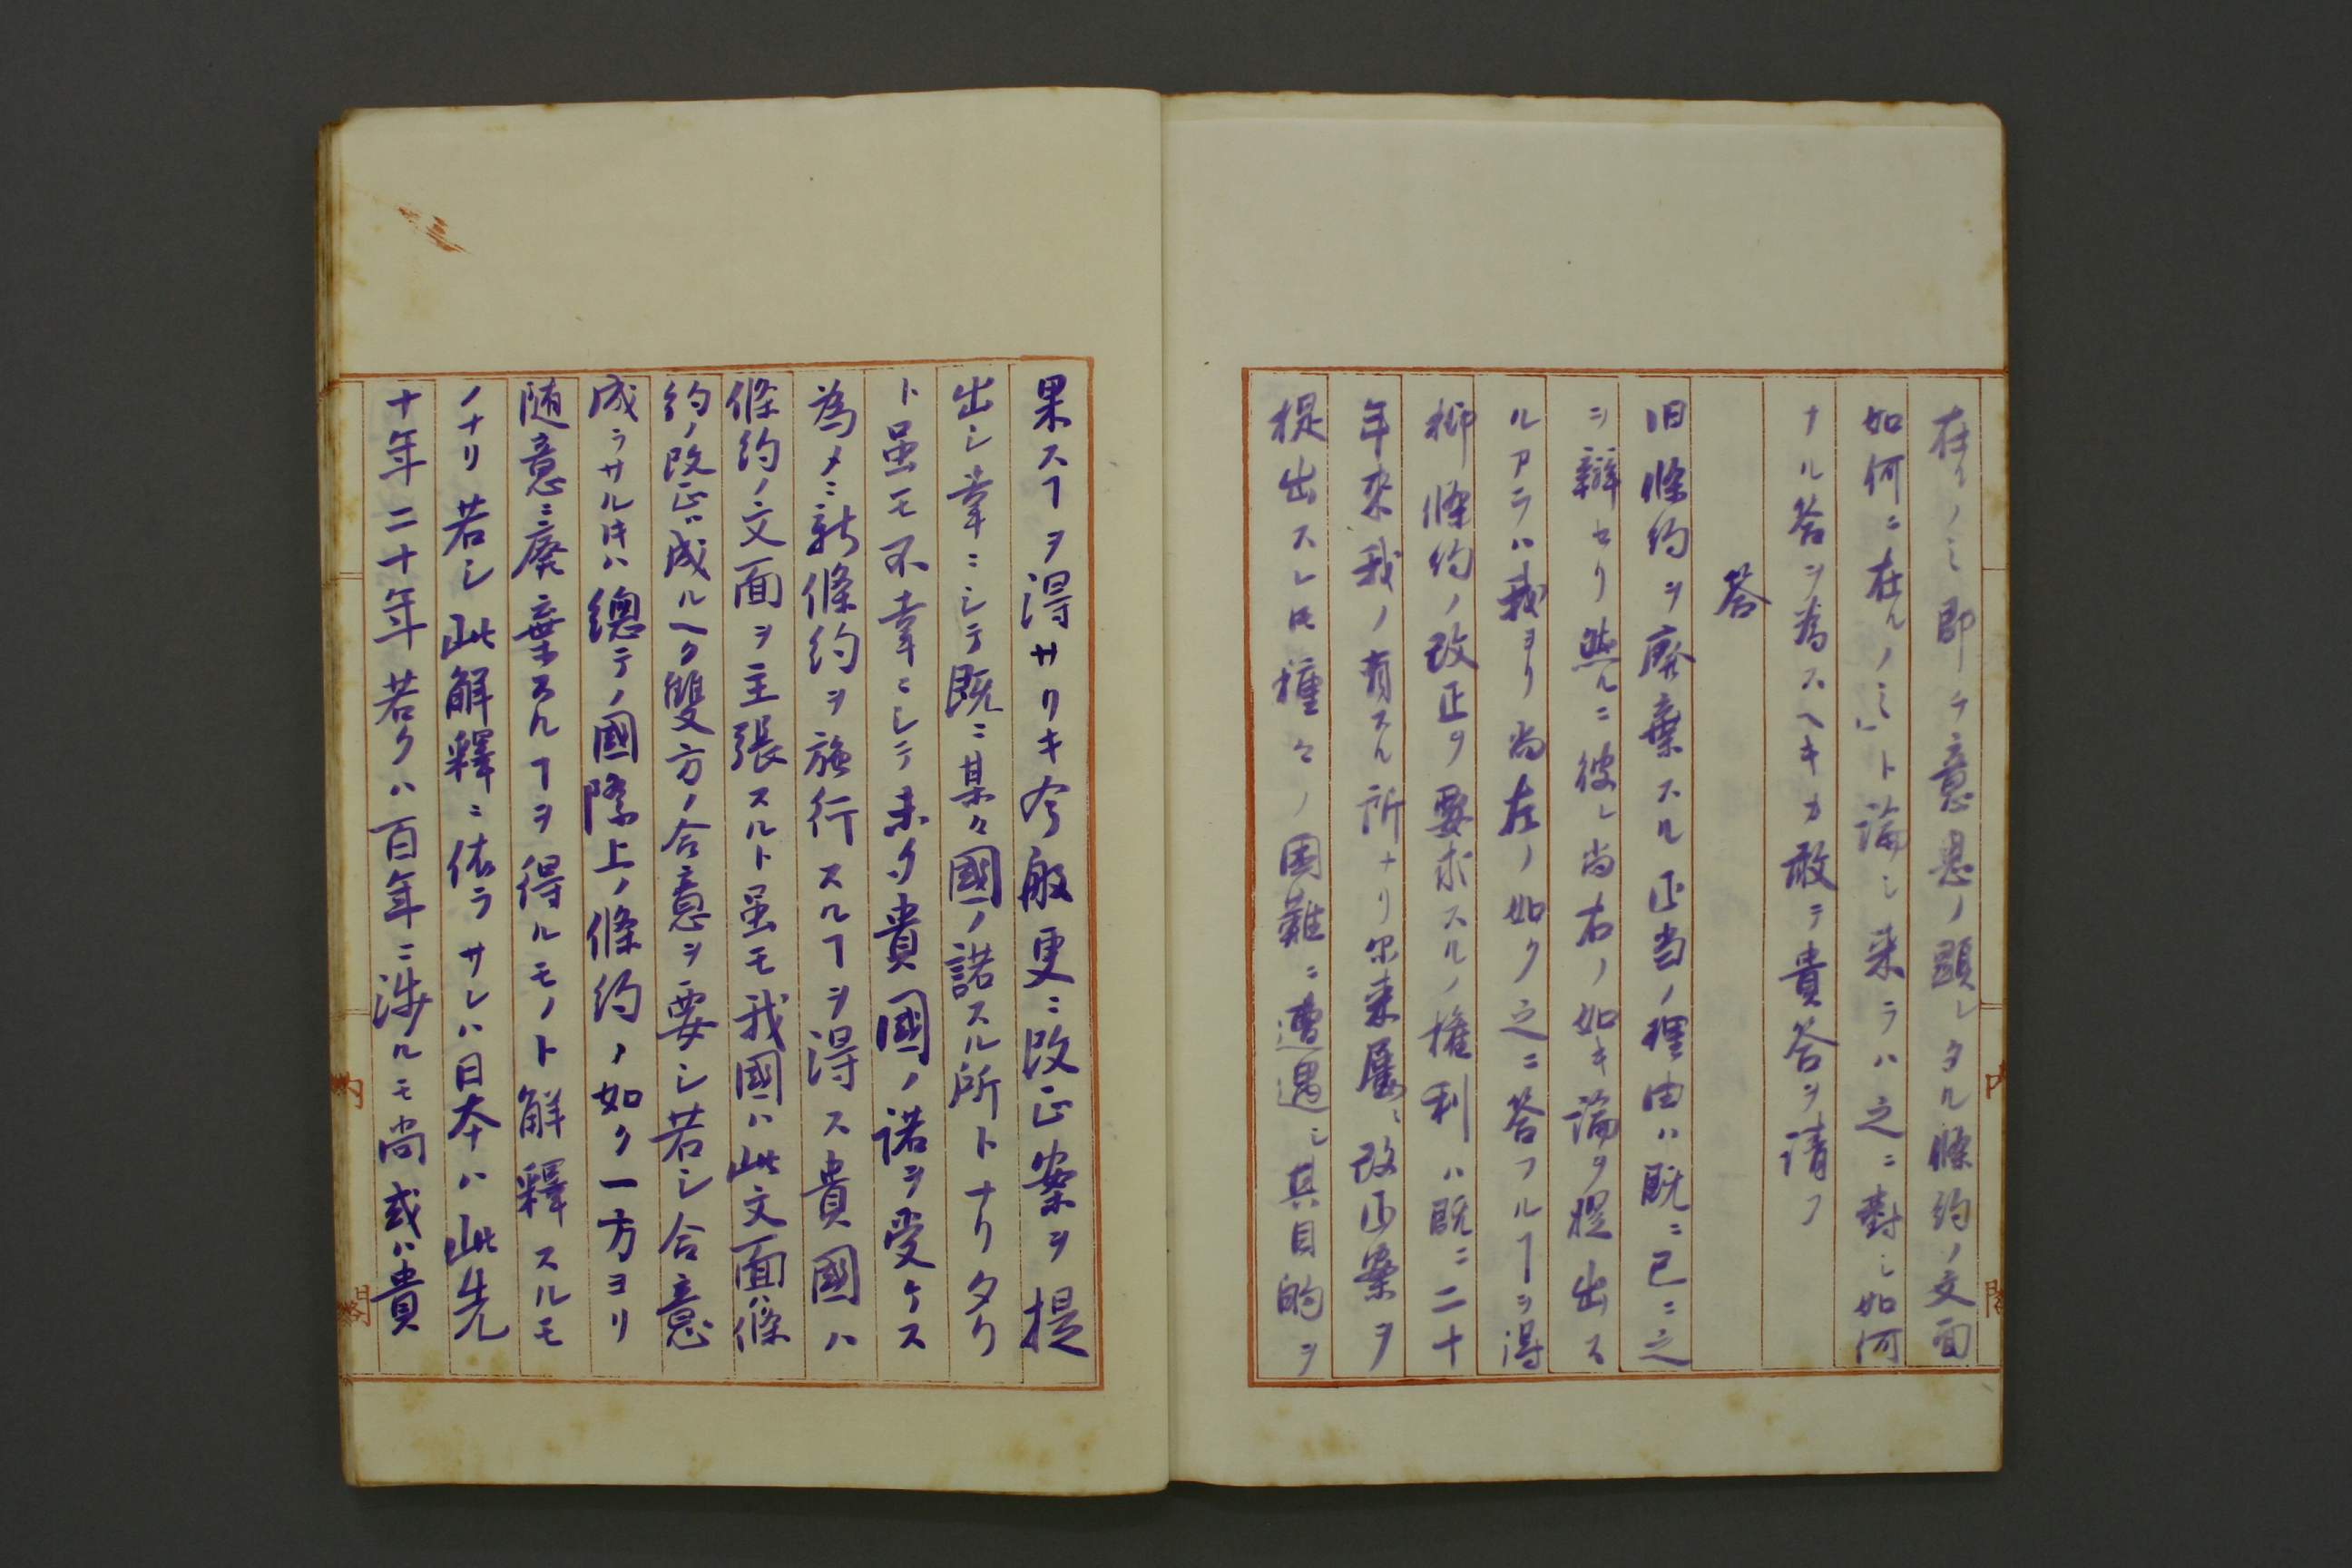 在ルノミ即チ意思ノ顕レタル條約ノ文面
如何ニ在ルノミ」ト論シ来ラハ之ニ對シ如何
ナル答ヲ為スヘキカ敢テ貴答ヲ請フ
答
旧條約ヲ廃棄スル正当ノ理由ハ既ニ已ニ之
ヲ辯セリ然ルニ彼レ尚右ノ如キ論ヲ提出ス
ルアラハ我ヨリ尚左ノ如ク之ニ答フルヿヲ得
抑條約ノ改正ヲ要求スルノ権利ハ既ニ二十
年来我ノ有スル所ナリ尓来屡〻改正案ヲ
提出スレ𪜈種々ノ困難ニ遭遇シ其目的ヲ
果スヿヲ得サリキ今般更ニ改正案ヲ提
出シ幸ニシテ既ニ某々國ノ諾スル所トナリタリ
ト虽モ不幸ニシテ未タ貴國ノ諾ヲ受ケス
為メニ新條約ヲ施行スルヿヲ得ス貴國ハ
條約ノ文面ヲ主張スルト虽モ我國ハ此文面條
約ノ改正ハ成ルヘク雙方ノ合意ヲ要シ若シ合意
成ラサル𪜈ハ總テノ國際上ノ條約ノ如ク一方ヨリ
随意ニ廃棄スルヿヲ得ルモノト解釋スルモ
ノナリ若シ此解釋ニ依ラサレハ日本ハ此先
十年二十年若クハ百年ニ渉ルモ尚或ハ貴
内閣
内閣